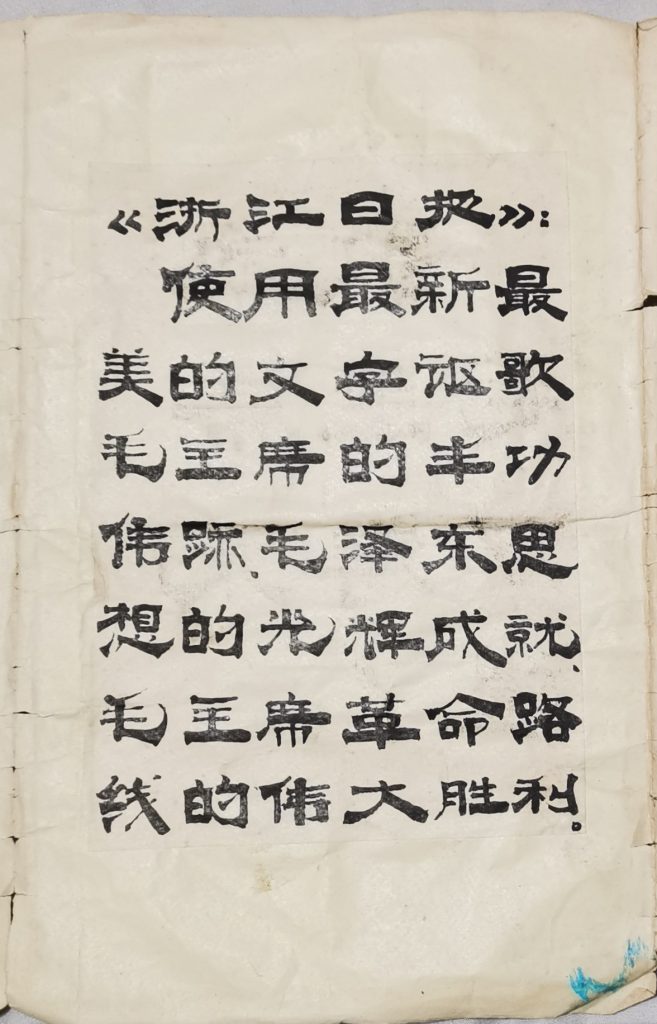 《浙江日报》：
使用最新最
美的文字讴歌
毛主席的丰功
伟迹、毛泽东思
想的光辉成就、
毛主席革命路
线的伟大胜利。